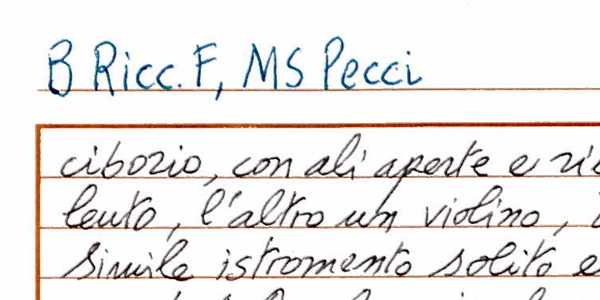 B Ricc. F, MS Pecci
ciborio, con ali aperte e
leuto, l'altro un violino,
simile istromento solito